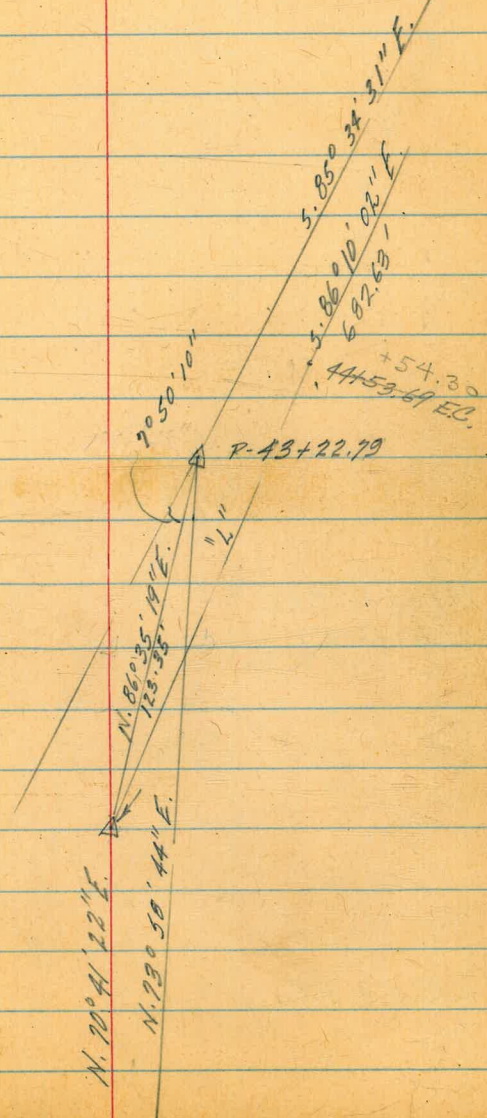 S. 85° 34' 31" E.
S. 86° 10' 02" E.
682.63'
+54.30
44+53.69 E.C.
7° 50' 10"
P-43+22.79
"L"
N. 86° 35' 19" E.
123.35'
N. 70° 41' 22" E.
N. 73° 58' 44" E.